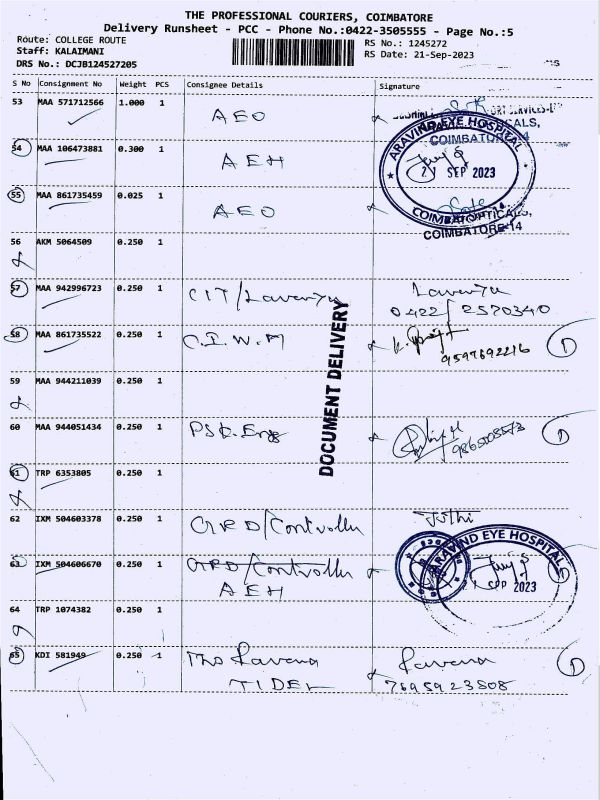 THE PROFESSIONAL COURIERS, COIMBATORE
Delivery Runsheet - PCC - Phone No.:0422-3505555 - Page No.:5
Route: COLLEGE ROUTE
Staff: KALAIMANI
DRS No.: DCJB124527205
RS No.: 1245272
RS Date: 21-Sep-2023
S No Consignment No Weight PCS Consignee Details Signature
53 MAA 571712566 1.000 1 AEO
54 MAA 106473881 0.300 1 AEH
ARAVIND EYE HOSPITAL
21 SEP 2023
COIMBATORE-14
55 MAA 861735459 0.025 1 AEO
COIMBATORE-14
56 AKM 5064509 0.250 1
57 MAA 942996723 0.250 1 CIT/Lavanya Lavanya
0422/2570340
58 MAA 861735522 0.250 1 C.I.W.M
9597692216 1
59 MAA 944211039 0.250 1
60 MAA 944051434 0.250 1 PSG.Eng 1
61 TRP 6353805 0.250 1
62 IXM 504603378 0.250 1 GRD/Controller Juthi
63 IXM 504606670 0.250 1 GRD/Controller
AEH
ARAVIND EYE HOSPITAL
SEP 2023
64 TRP 1074382 0.250 1
65 KDI 581949 0.250 1 1
TIDEL 7695923508
DOCUMENT DELIVERY